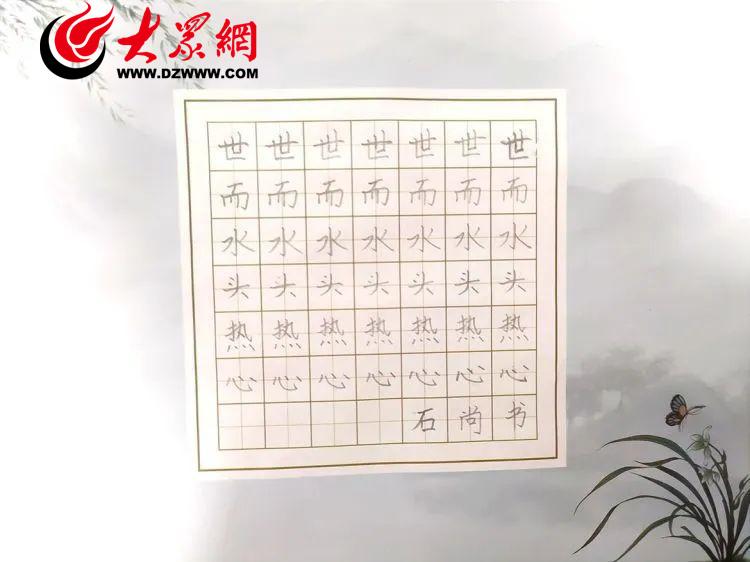 大眾網
WWW.DZWWW.COM
世世世世世世世
而而而而而而而
水水水水水水水
头头头头头头头
热热热热热热热
心心心心心心心
石尚书